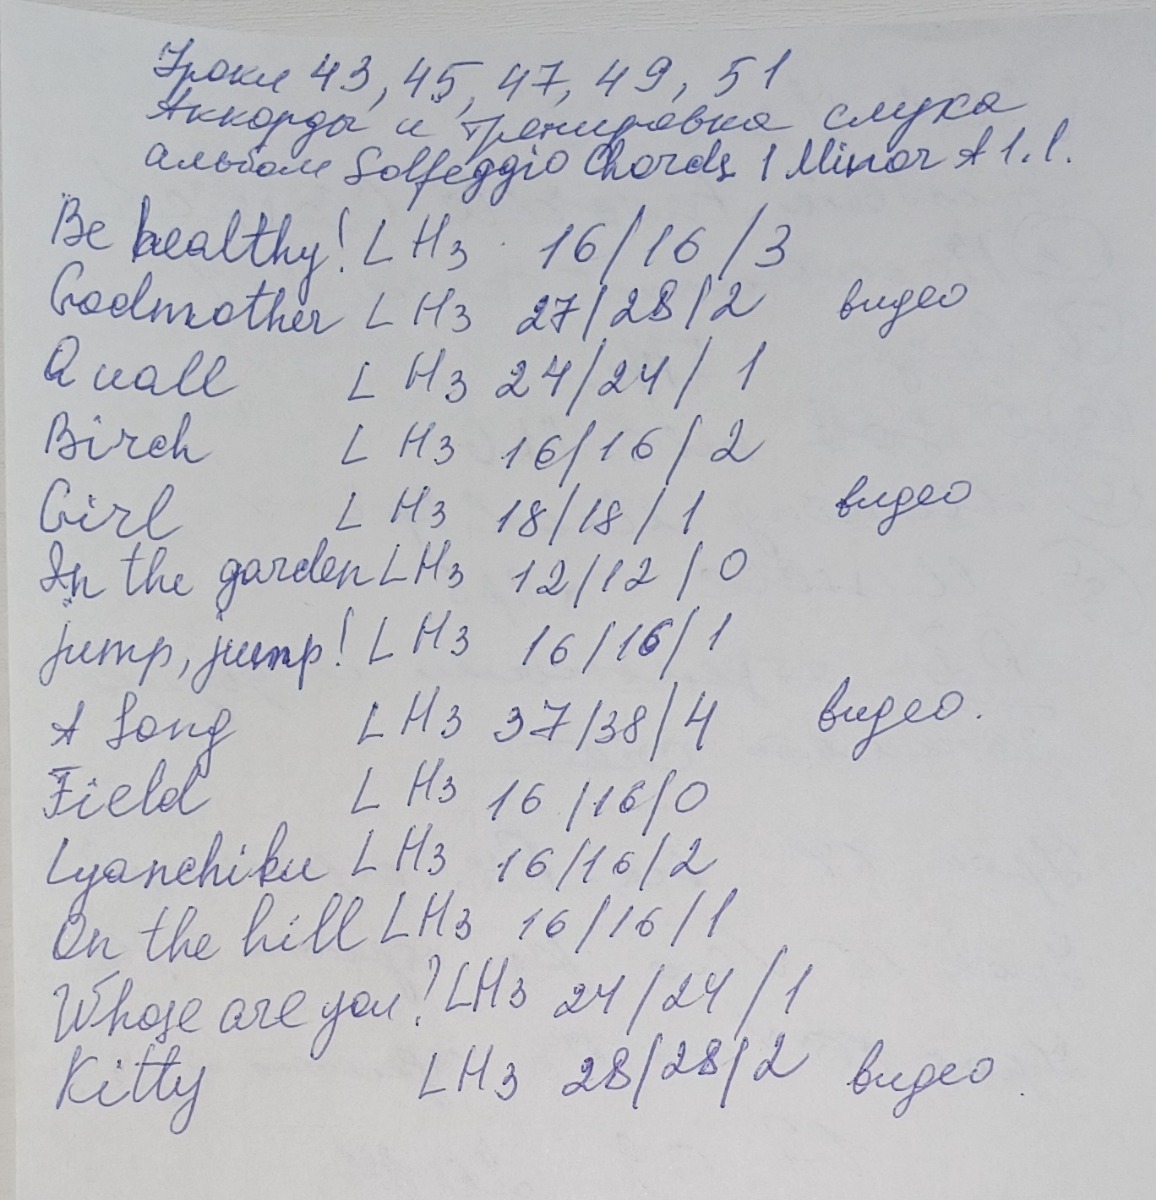 Уроки 43, 45, 47, 49, 51
Аккорды и тренировка слуха
альбом Solfeggio Chords 1 Minor A 1.1.
Be healthy! L H3 16/16/3
Godmother L H3 27/28/2 видео
Quall L H3 24/24/1
Birch L H3 16/16/2
Girl L H3 18/18/1 видео
In the garden L H3 12/12/0
jump, jump! L H3 16/16/1
A Song L H3 37/38/4 видео.
Field L H3 16/16/0
Lyanchiku L H3 16/16/2
On the hill L H3 16/16/1
Whose are you? LH3 24/24/1
Kitty LH3 28/28/2 видео.